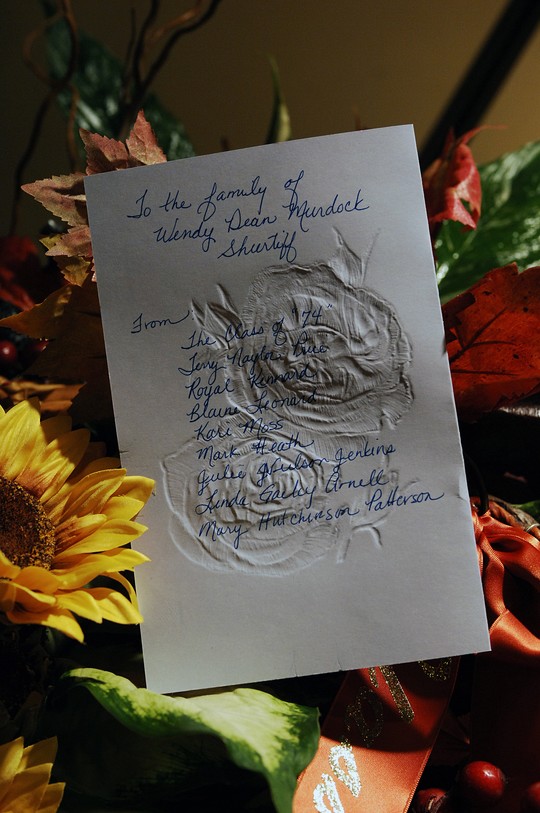 To the family of
Wendy Dean Murdock
Shurtliff
From:
The Class of "74"
Terry Naylor Price
Royal Kennard
Blaine Leonard
Kari Moss
Mark Heath
Julie Wilson Jenkins
Linda Gailey Arnell
Mary Hutchinson Patterson